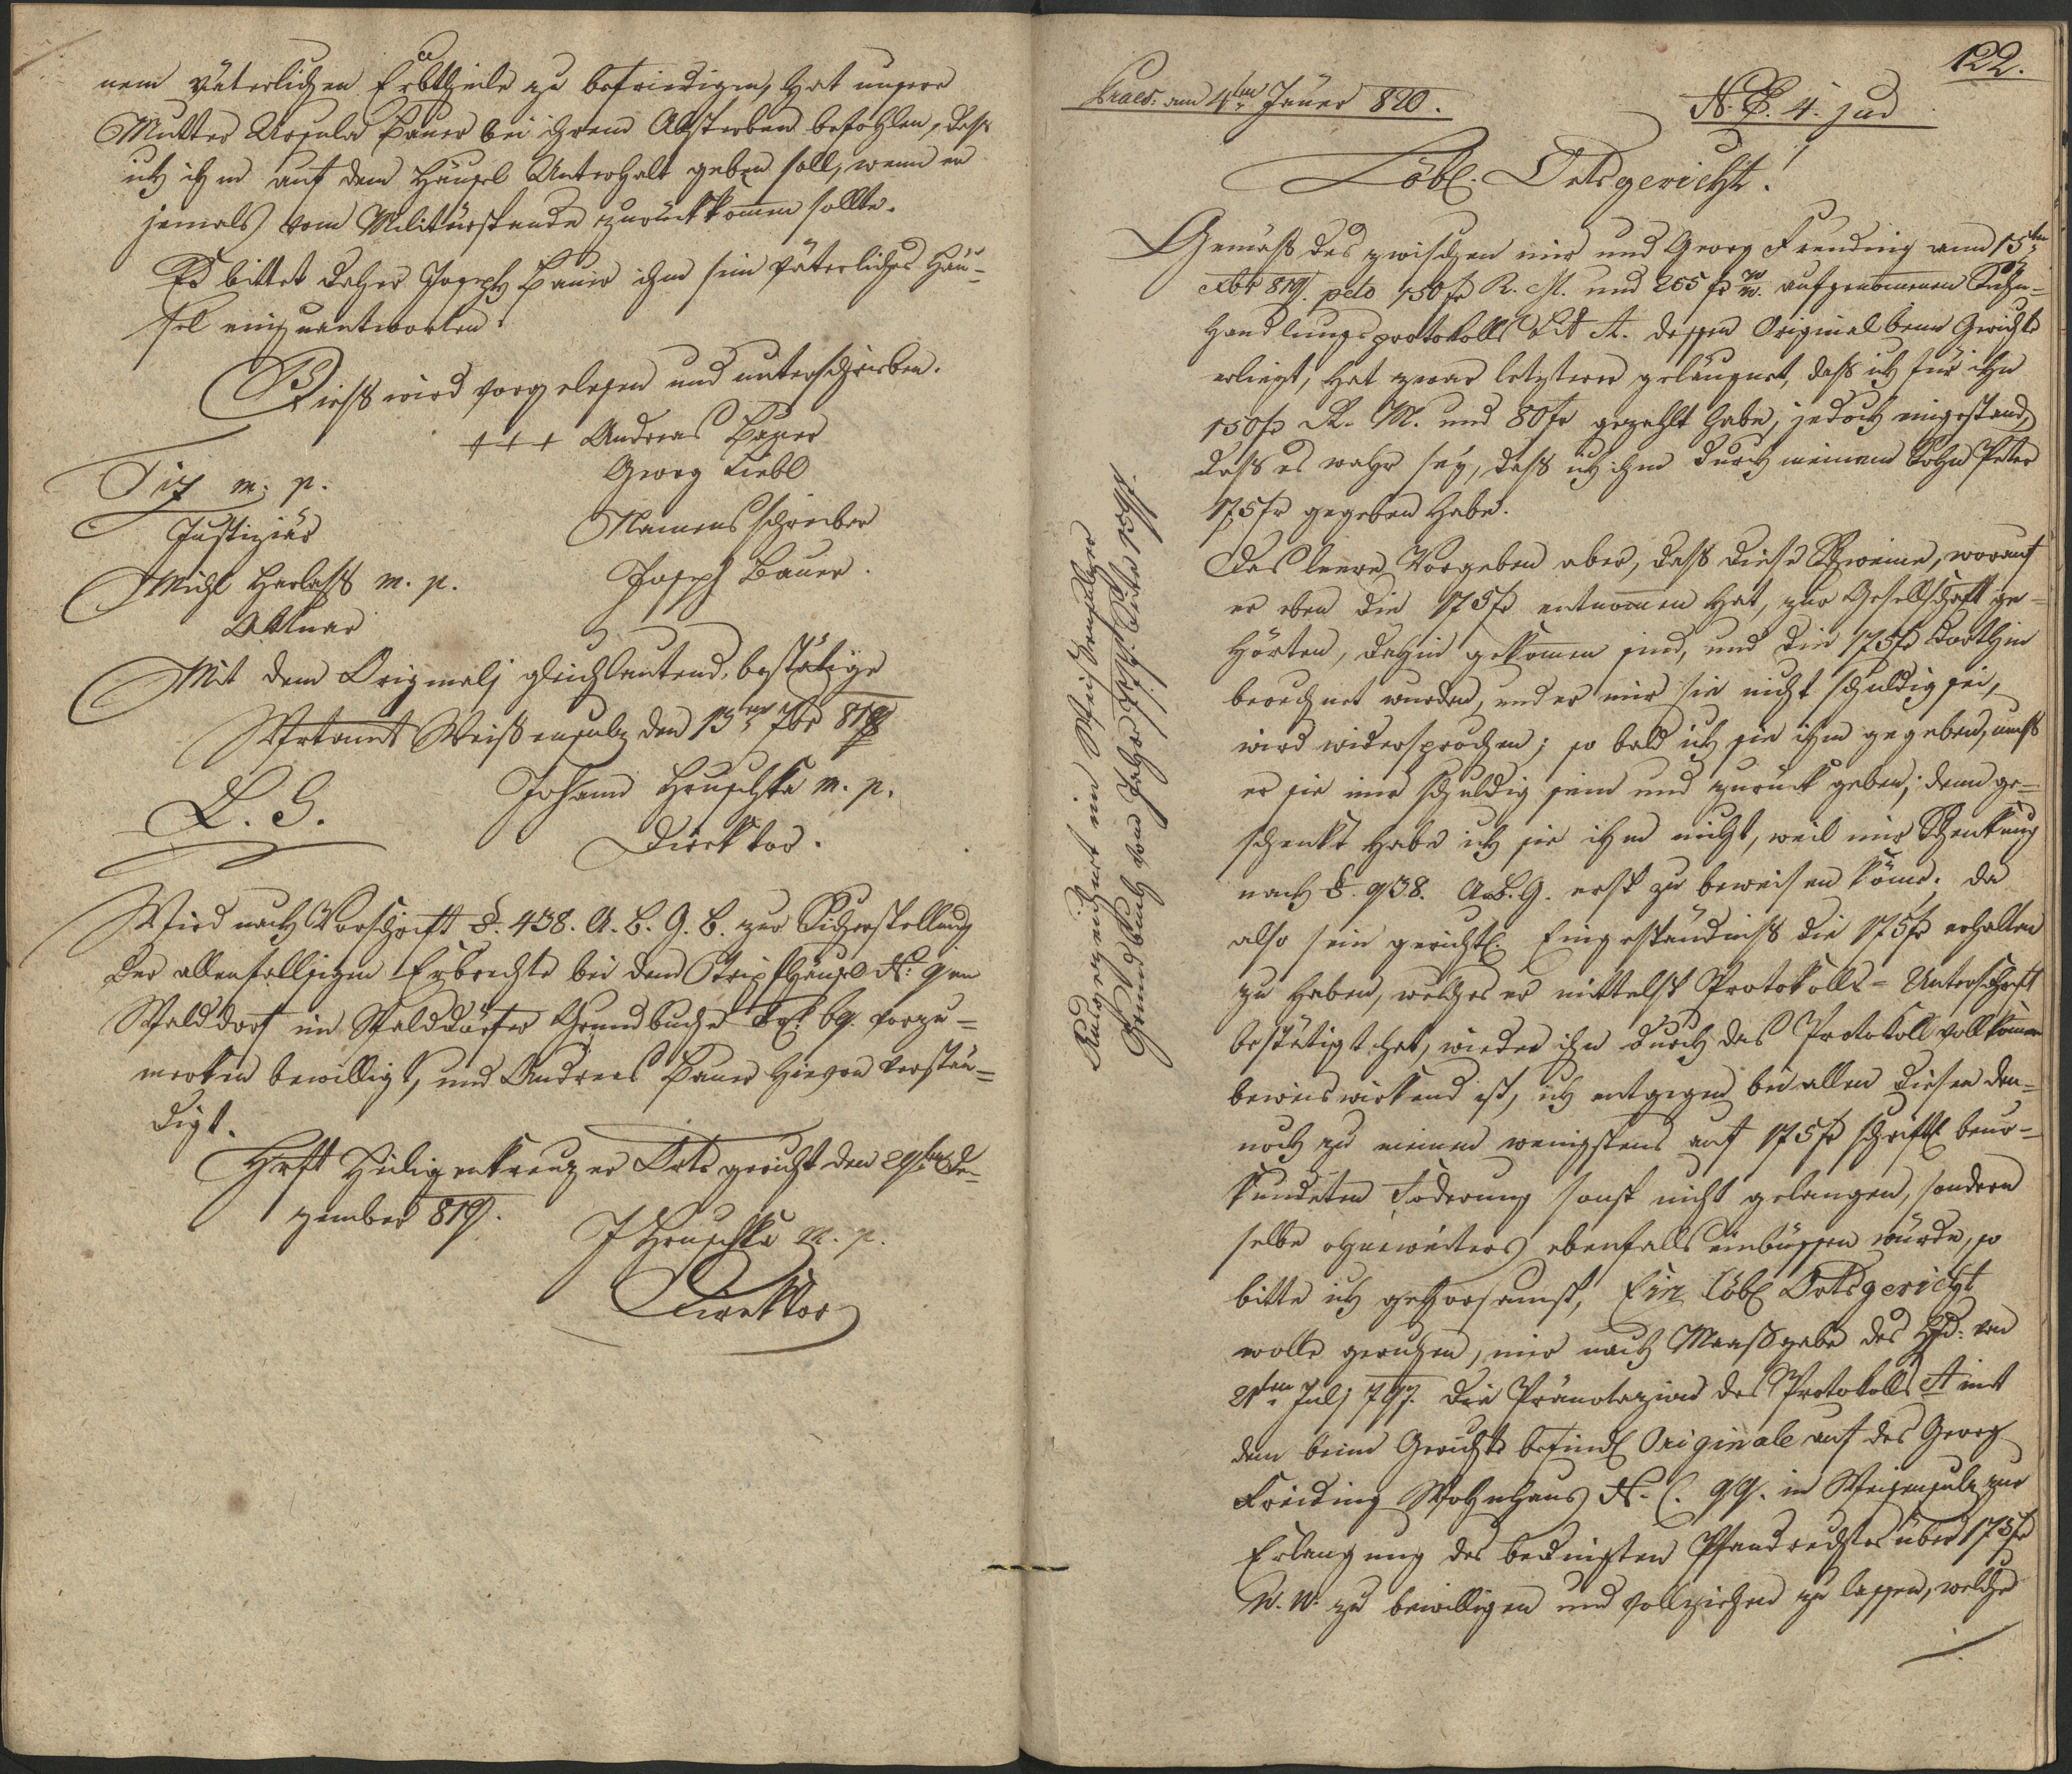 nem väterlichen Erbtheile zu befriedigen, hat unsere
Mutter Ursula Bauer bei ihrem Absterben befohlen, daß
ich ihm auf dem Häusel Unterhalt geben soll, wenn er
jemals vom Militärstande zurückkommen sollte.
Es bittet daher Joseph Bauer ihm sein väterliches Häu-
sel einzuantworten.
Dieß wird vorgelesen und unterschrieben.
+++ Andreas Bauer
Georg Liebl
Namensschreiber
Joseph Bauer.
Tix m. p.
Justiziär
Michl Herlaß m. p.
Aktuar
Mit dem Originali gleichlautend, bestätige
Wirtamt Weißensulz den 13ten 7br 819
L. S.
Johann Hruschka m. p.
Direktor.
Wird nach Vorschrift §. 438. A. B. G. B. zur Sicherstellung
der allenfallsigen Erbrechte bei dem Häusel N: 9 in
Walddorf im Walddörfer Grundbuche Fol: 69. vorzu-
merken bewilligt, und Andreas Bauer hievon verstän-
digt.
Hrft Heiligenkreuzer Ortsgericht den 29ten De-
zember 819.
J Hruschka m. p.
Direktor
122.
Praes: am 4ten Jäner 820.
N. E. 4. jud
Löbl. Ortsgericht!
Gemäß des zwischen mir und Georg Freuding am 15ten
Xbr 819. pcto 150 fr R. M. und 255 fr W.W. aufgenommenen
Handlungsprotokolls Lit A. dessen Original beim Gerichte
erliegt, hat zwar letzterer geläugnet, daß ich für ihn
150 fr R. M. und 80 fr gezahlt habe, jedoch eingestand,
daß es wahr sey, daß ich ihm durch meinem Sohn Peter
175 fr gegeben habe.
Das leere Vorgeben aber, daß diese Schweine, worauf
er eben die 175 fr entnommen hat, zur Gesellschaft ge-
hörten, dahin gekommen sind, und die 175 fr dorthin
berechnet wurden, und er mir sie nicht schuldig sei,
wird widersprochen; so bald ich sie ihm gegeben, muß
er sie mir schuldig sein und zurück geben; denn ge-
schenkt habe ich sie ihm nicht, weil mir Schenkung
nach §. 938. A. B. G. erst zu beweisen käme. Da
also sein gerichtl. Eingeständniß die 175 fr erhalten
zu haben, welches er mittelst Protokolls-Unterschrift
bestätigt hat, wieder ihn durch das Protokoll vollkomen
beweiswirkend ist, ich entgegen bei allen diesen den-
noch zu meiner wenigstens auf 175 fr schriftl. beur-
kundeten Foderung sonst nicht gelangen, sondern
selbe ohneweiters ebenfalls einbüssen würde, so
bitte ich gehorsamst, Ein löbl Ortsgericht
wolle geruhen, mir nach Maaßgabe des Hfd: von
21ten Juli 797. die Pränotazion des Protokolls A mit
dem beim Gerichte befindl Originale auf des Georg
Freiding Wohnhaus N. C. 99. in Weisensulz zur
Erlangung des bedingten Pfandrechtes über 175 fr
W. W. zu bewilligen und vollziehen zu lassen, welche
Eingezeichnet im Weisensulzer
Grundbuch vom Jahr